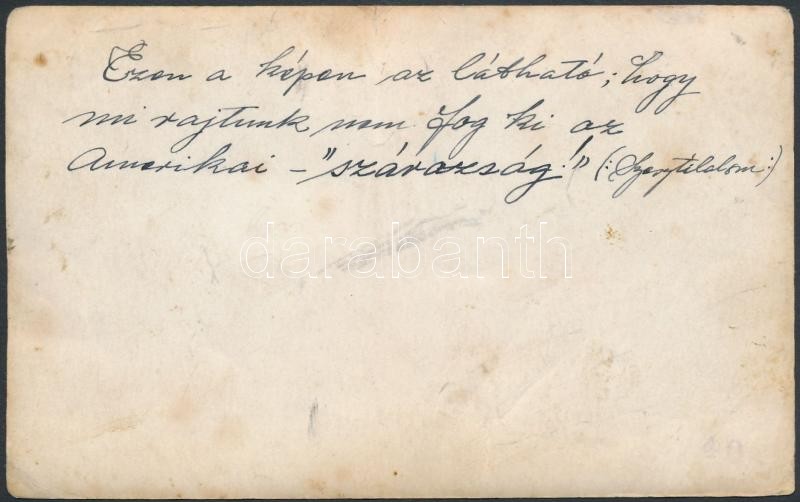 Ezen a képen az látható; hogy
mi rajtunk nem fog ki az
Amerikai - "szárazság!" (: Szesztilalom :)
darabanth